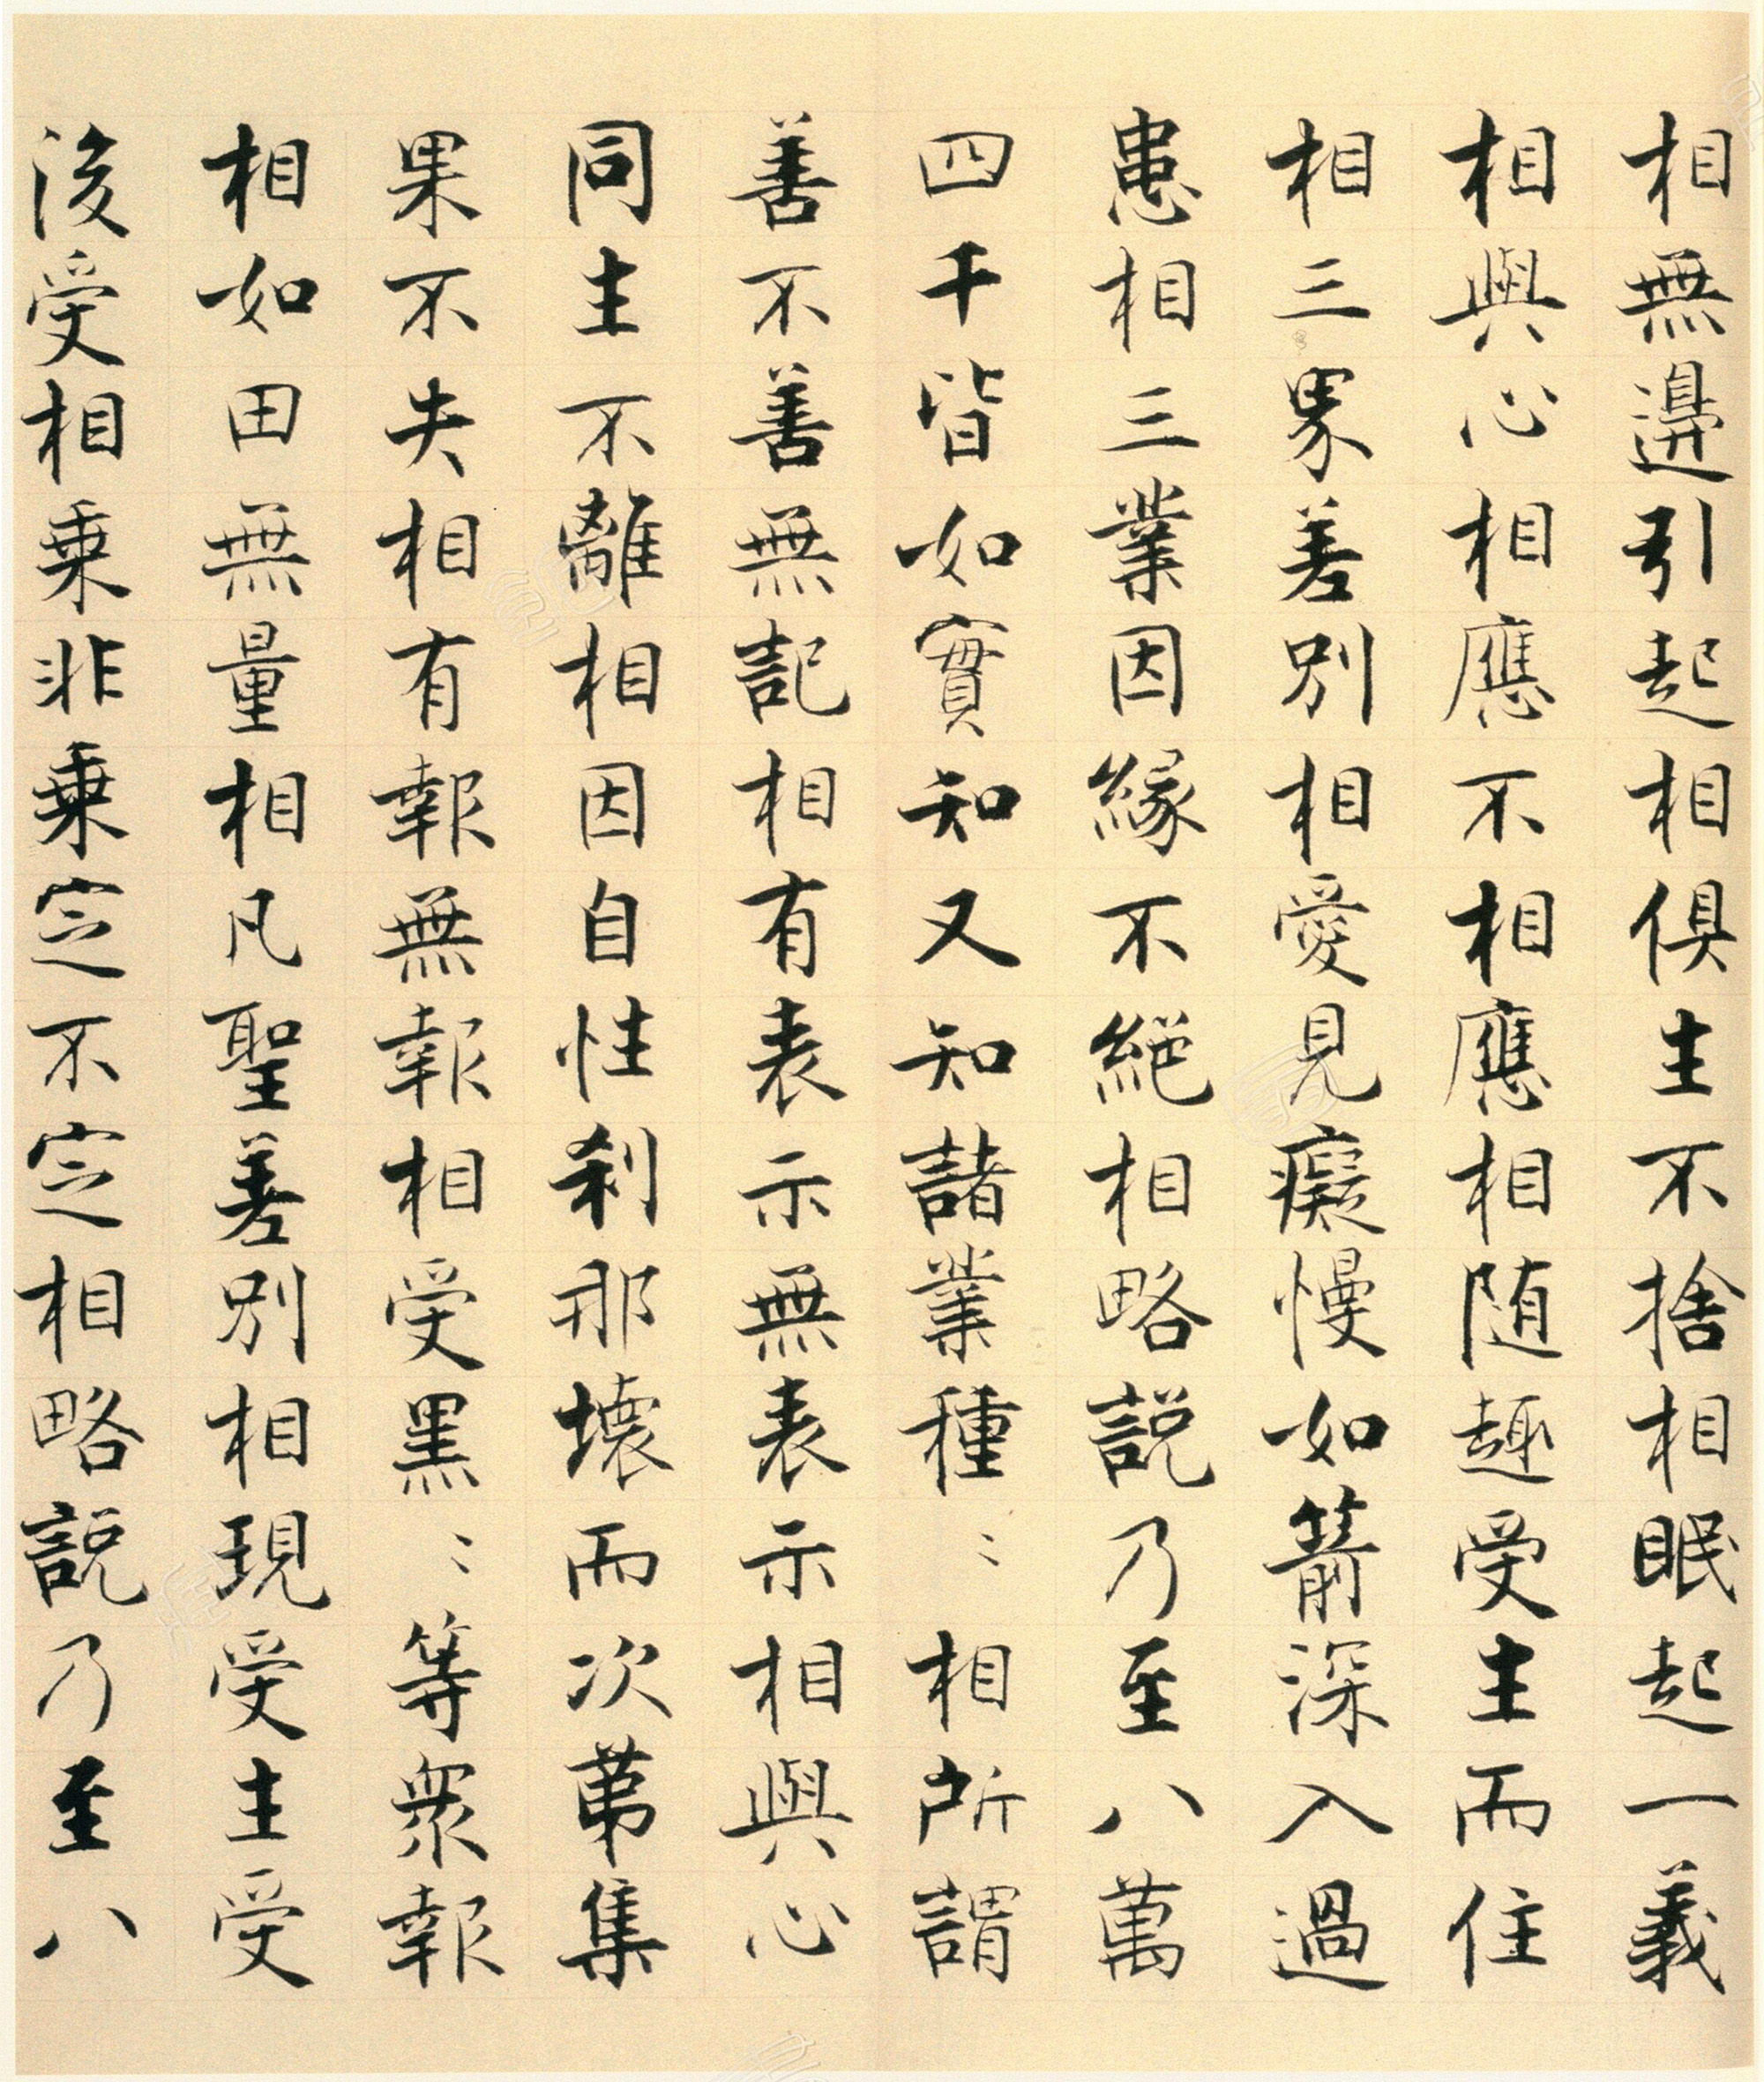 相無邊引起相俱生不捨相眠起一義
相與心相應不相應相随趣受生而住
相三界差別相愛見癡慢如箭深入過
患相三業因緣不絕相略說乃至八萬
四千皆如實知又知諸業種〻相所謂
善不善無記相有表示無表示相與心
同生不離相因自性刹那壞而次第集
果不失相有報無報相受黑〻等衆報
相如田無量相凡聖差別相現受生受
後受相乘非乘定不定相略說乃至八